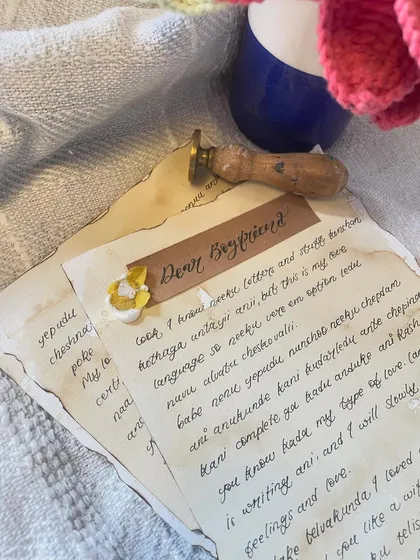 Dear Boyfriend
Look, I know neeku letters and stuff kunchan
kothaga untayii anii, but, this is my love
language so neeku vere em option ledu
nuvu alvatu cheskovalii.
babe nenu yepudu nunchoo neeku chepdam
ani anukunde kani kudarledu ante chepina
kani complete ga kadu anduke ani
you know kada my type of love
is writing ani, and I will slowly
feelings and love.
I loved
you like a
yepudu
cheshna
poke
My lo
certi
naa
an